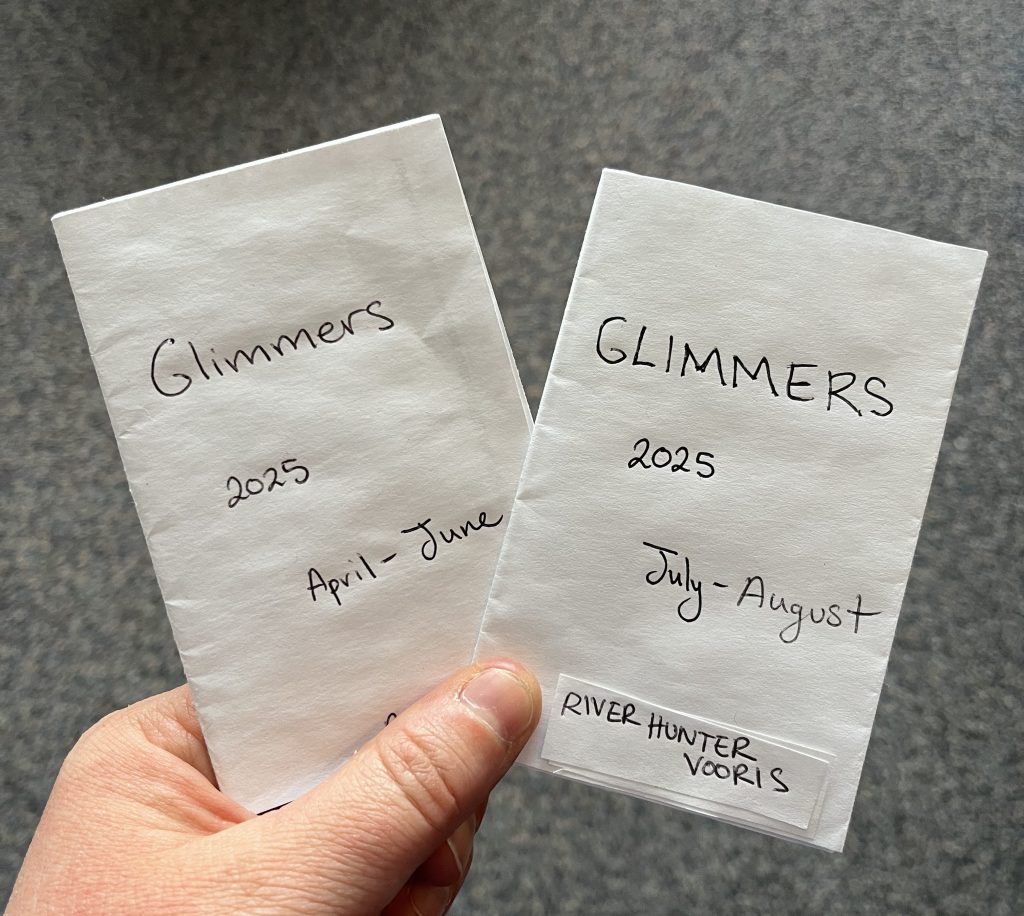 Glimmers
2025
April - June
GLIMMERS
2025
July - August
RIVER HUNTER
VOORIS